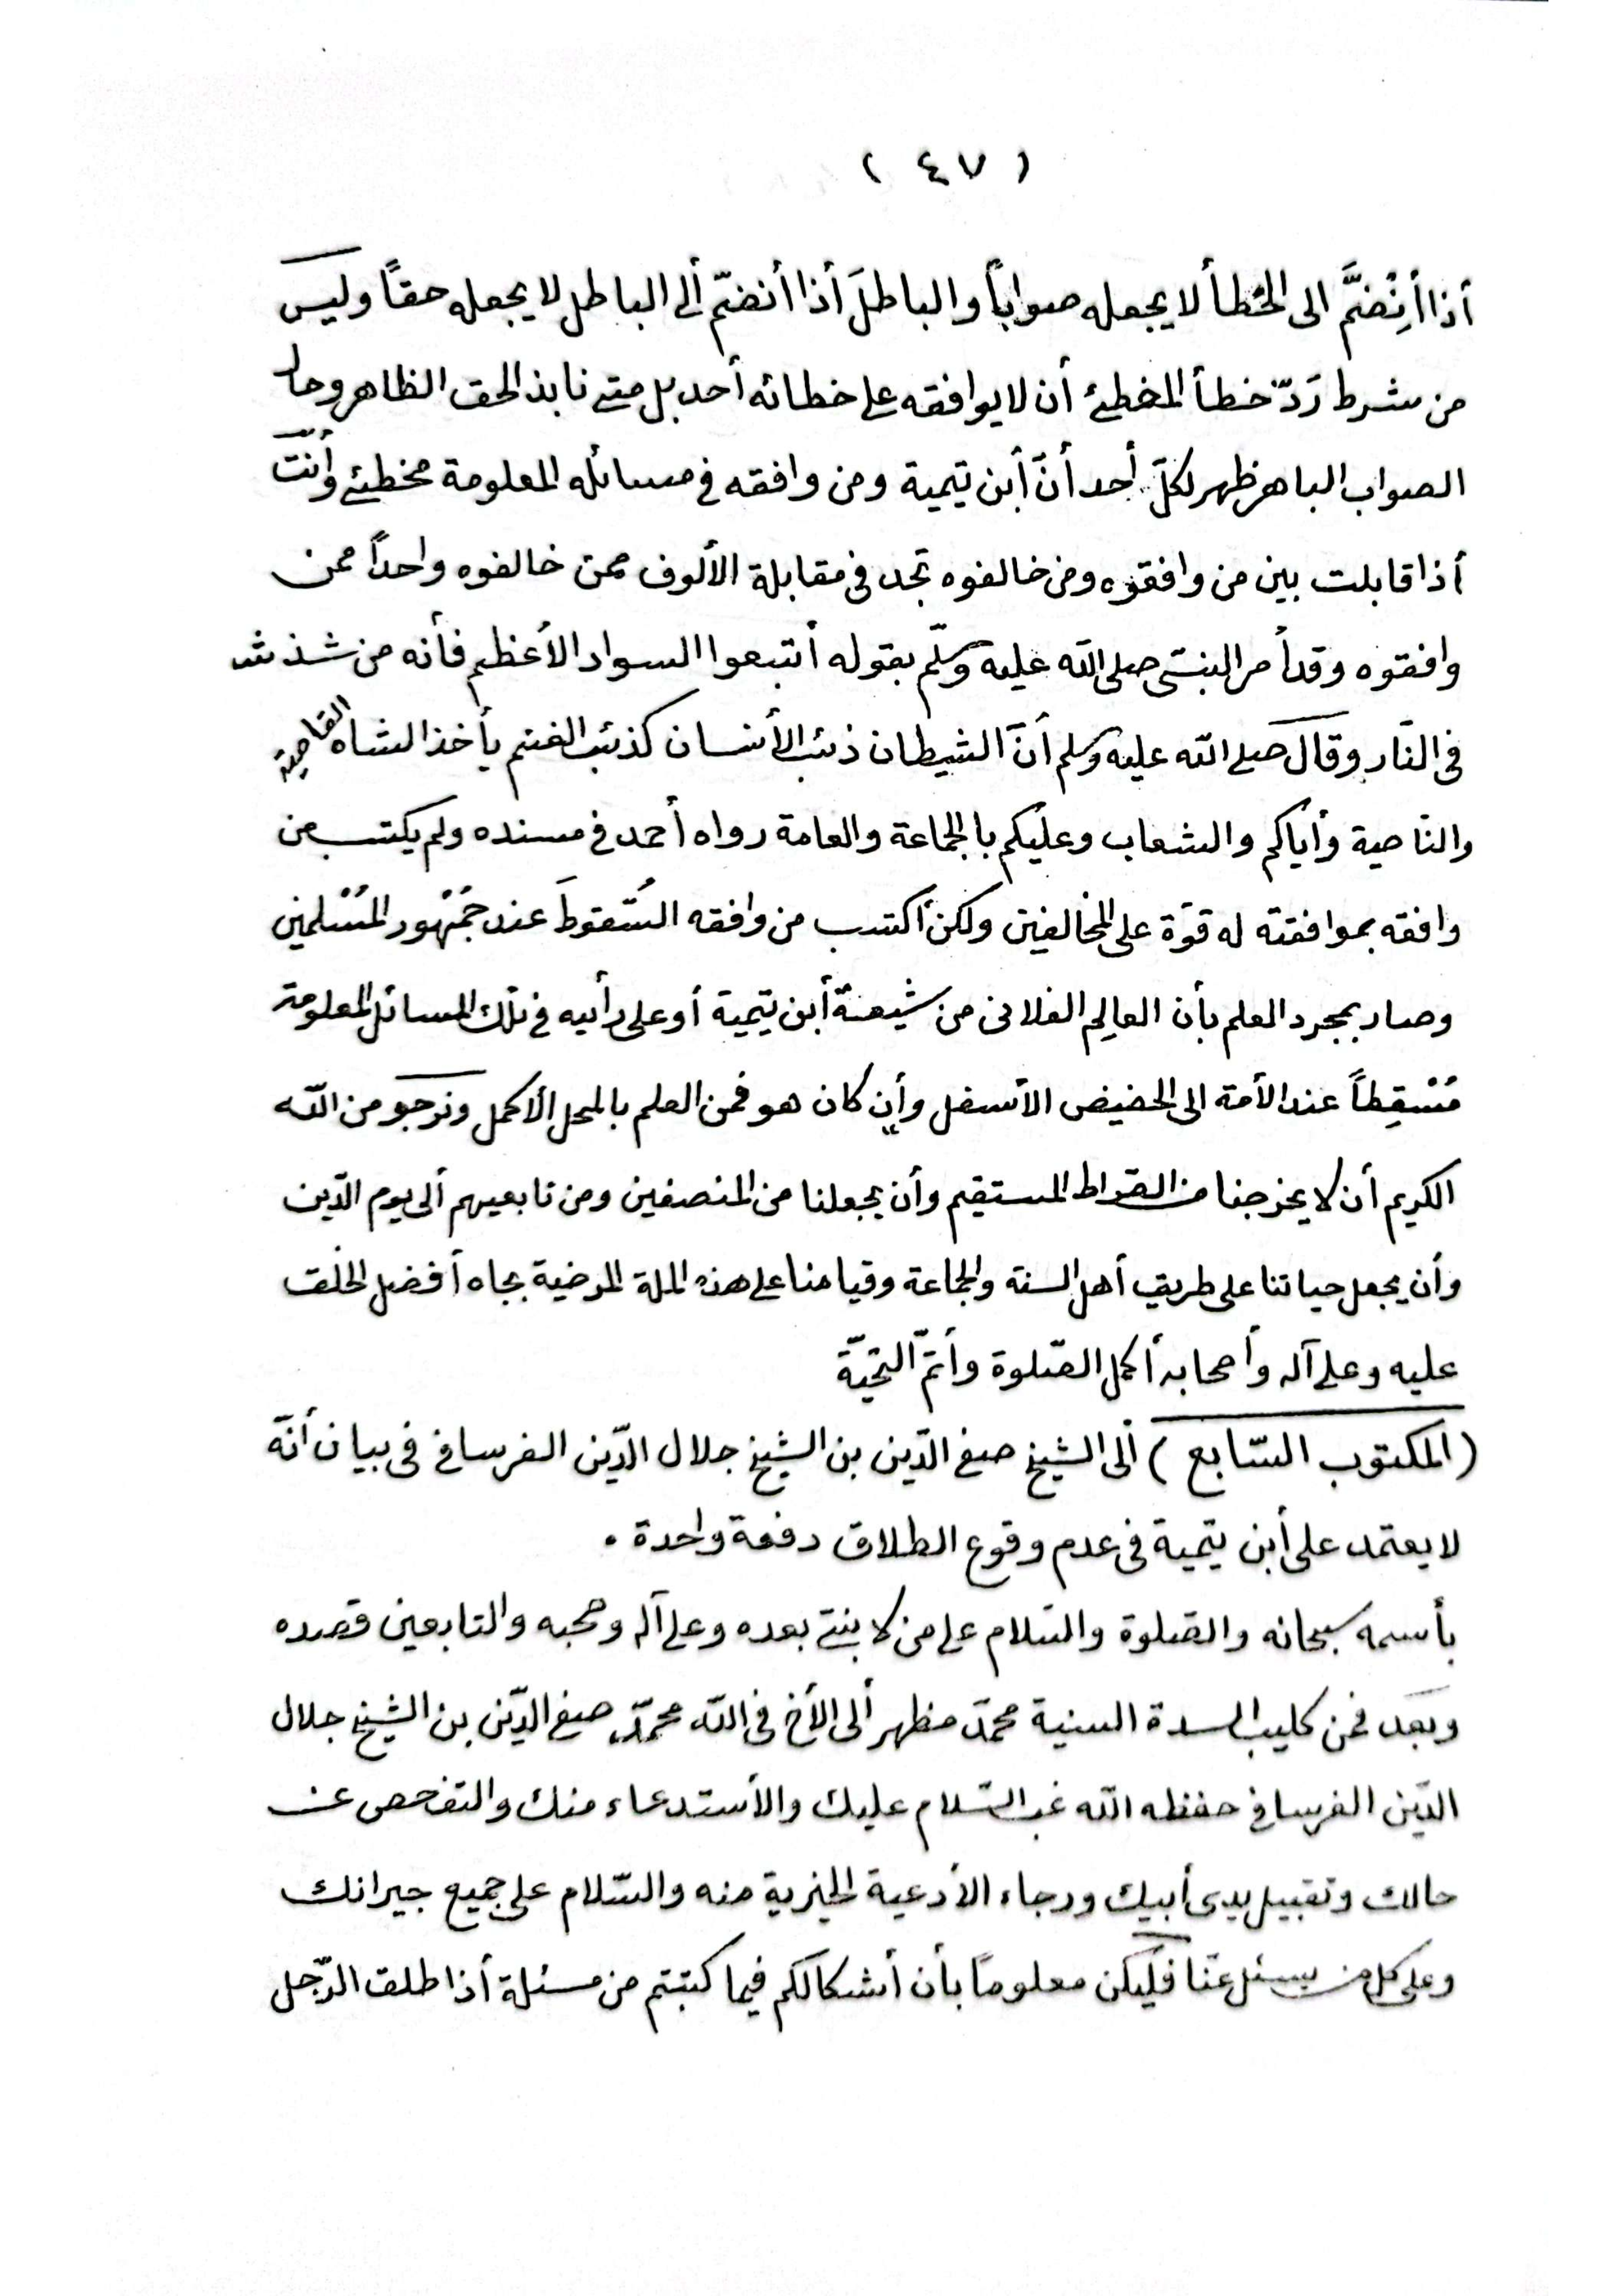 ( ٤٧ )
أذا أنْضمَّ الى الخطأ لا يجعله صواباً والباطلَ أذا أنضمّ ألى الباطل لا يجعله حقاً وليس
من شرط رَدّ خطأ المخطئ أن لا يوافقه على خطائه أحد بل متى نابذ الحق الظاهر وحاد
الصواب الباهر ظهر لكلّ أحد أنّ أبن تيمية ومن وافقه فى مسائله المعلومة مخطئ وأنت
أذا قابلت بين من وافقوه ومن خالفوه تجد فى مقابلة الألوف ممن خالفوه واحداً ممن
وافقوه وقد أمر النبىّ صلى الله عليه وسلّم بقوله أتبعوا السواد الأعظم فأنه من شذ شذ
فى النّار وقال صلى الله عليه وسلم أنّ الشيطان ذئب الأنسان كذئب الغنم يأخذ الشاه القاصية
والنّاصية وأياكم والشعاب وعليكم بالجماعة والعامة رواه أحمد فى مسنده ولم يكتسب من
وافقه بموافقته له قوّة على المخالفين ولكن أكتسب من وافقه السُّقوطَ عند جُمْهور المُسْلمين
وصار بمجرد العلم بأن العالِم الفلانى من شيعة أبن تيمية أو على رأيه فى تلك المسائل المعلومة
مُسْقِطاً عند الأمة الى الحضيض الأسفل وأن كان هو فمن العلم بالمحل الأكمل ونرجو من الله
الكريم أن لا يخرجنا من الصّراط المستقيم وأن يجعلنا من المنصفين ومن تابعيهم ألى يوم الدّين
وأن يجعل حياتنا على طريق أهل السنة والجماعة وقيامنا على هذه الملة المرضية بجاه أفضل الخلق
عليه وعلى آله وأصحابه أكمل الصّلوة وأتمّ التحيّة
(المكتوب السّابع) ألى الشيخ صفى الدّين بن الشيخ جلال الدّين الفرسافى فى بيان أنّه
لا يعتمد على أبن تيمية فى عدم وقوع الطلاق دفعة واحدة .
بأسمه سبحانه والصّلوة والسّلام على من لا نبىّ بعده وعلى آله وصحبه والتابعين قصده
وبعد فمن كليب السدة السنية محمّد مظهر ألى الأخ فى الله محمّد صفى الدّين بن الشيخ جلال
الدّين الفرسافى حفظه الله غب السّلام عليك والأستدعاء منك والتفحص عن
حالك وتقبيل يدى أبيك ورجاء الأدعية الخيرية منه والسّلام على جميع جيرانك
وعلى كل من يسئل عنّا فليكن معلوماً بأن أشكالكم فيما كتبتم من مسئلة أذا طلق الرّجل